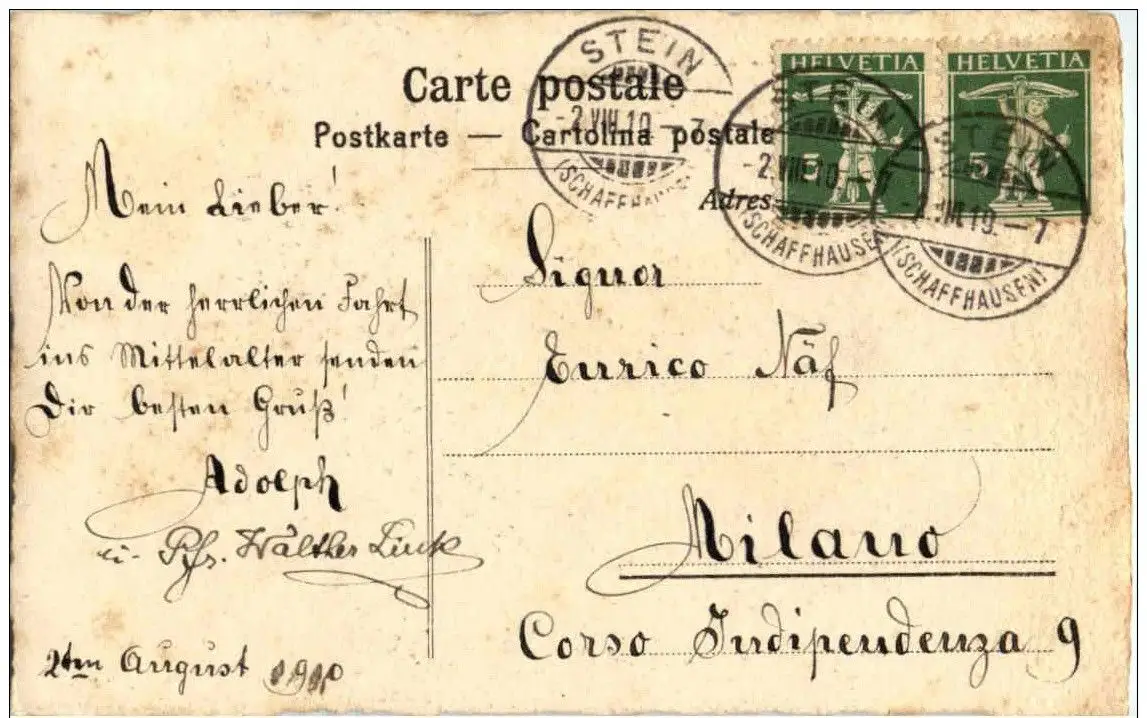 Carte postale
Postkarte — Cartolina postale
HELVETIA
HELVETIA
5
5
STEIN
-2.VIII.10.-7
(SCHAFFHAUSEN)
STEIN
-2.VIII.10.-7
(SCHAFFHAUSEN)
STEIN
-2.VIII.10.-7
(SCHAFFHAUSEN)
Adres
Mein Lieber!
Von der herrlichen Fahrt
ins Mittelalter senden
Dir besten Gruß!
Adolph
u. Pfr. Walther
2ten August 1910
Signor
Enrico Näf
Milano
Corso Indipendenza 9